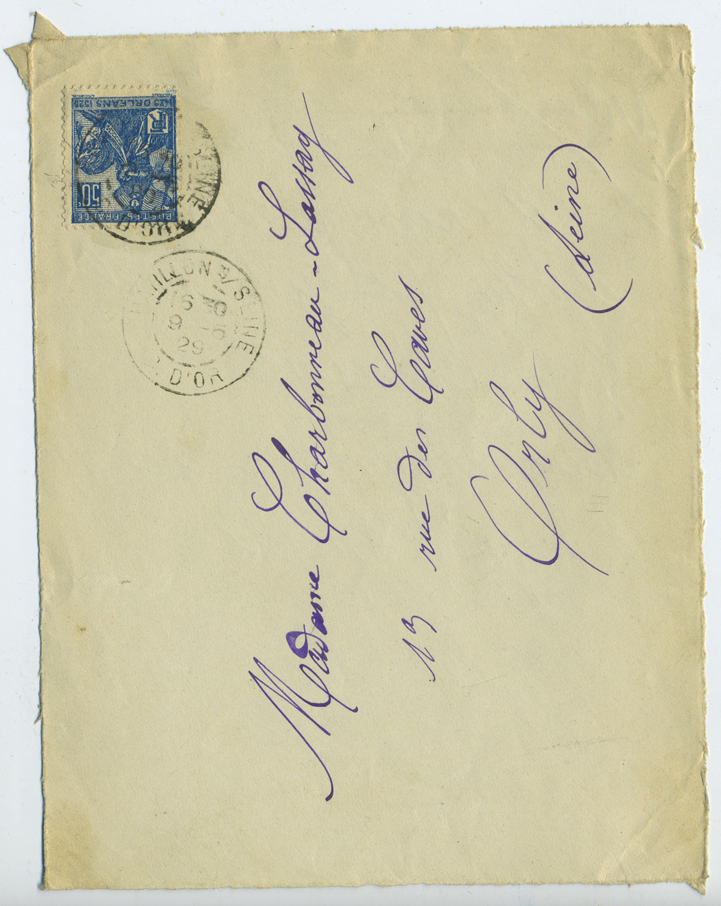 Madame Charbonneau-Lassay
13 rue des Caves
Orly
(Seine)
1429 ORLÉANS 1929
RF
50c
POSTES FRANCE
ILLON S/SEINE
16
9 -6
29
D'OR
SEINE